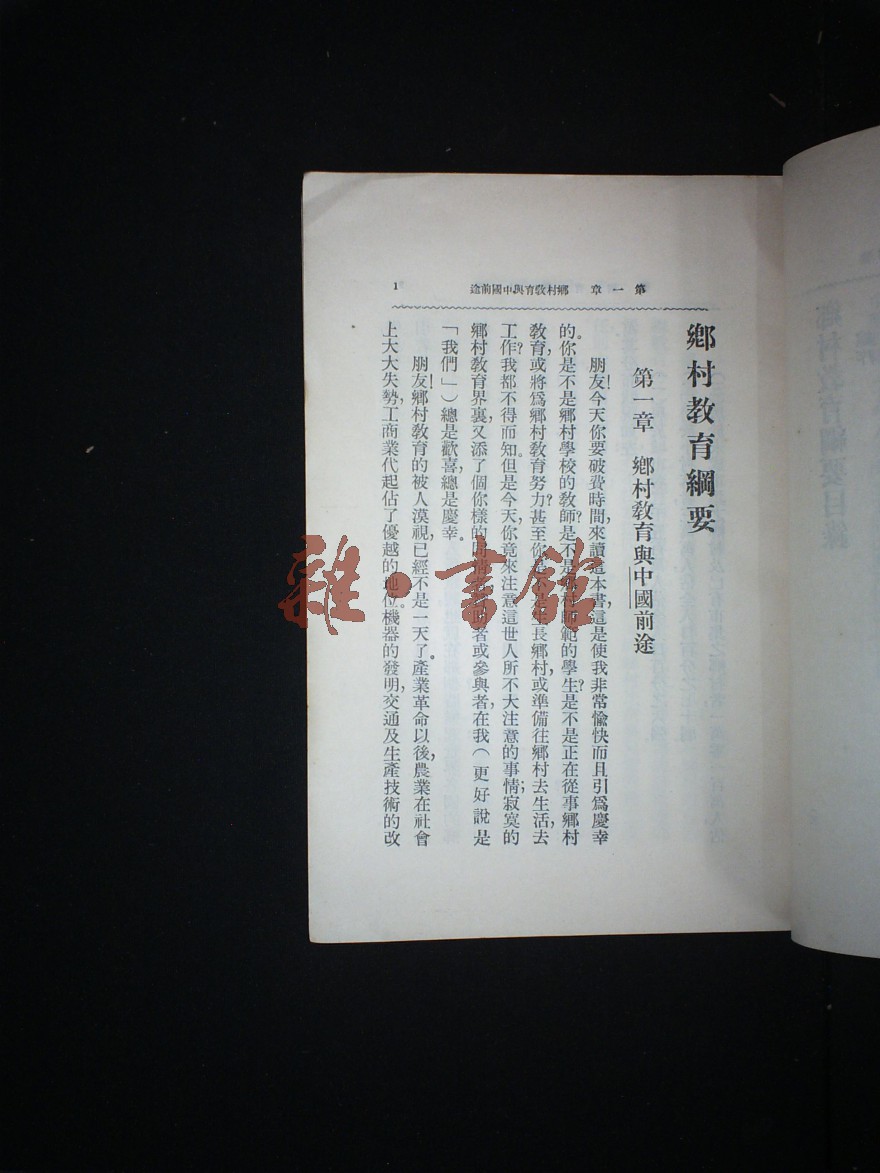 第一章 鄉村教育與中國前途 1
鄉村教育綱要
第一章 鄉村教育與中國前途
朋友!今天你要破費時間,來讀這本書,這是使我非常愉快而且引爲慶幸
的。你是不是鄉村學校的教師?是不是鄉村師範的學生?是不是正在從事鄉村
教育,或將爲鄉村教育努力?甚至你是不是生長鄉村,或準備往鄉村去生活去
工作?我都不得而知。但是今天,你竟來注意這世人所不大注意的事情;寂寞的
鄉村教育界裏,又添了個你樣的同情者,助者或參與者,在我(更好說是
「我們」)總是歡喜,總是慶幸。
朋友!鄉村教育的被人漠視,已經不是一天了。產業革命以後,農業在社會
上大大失勢,工商業代起佔了優越的地位。機器的發明,交通及生產技術的改
雜·書館